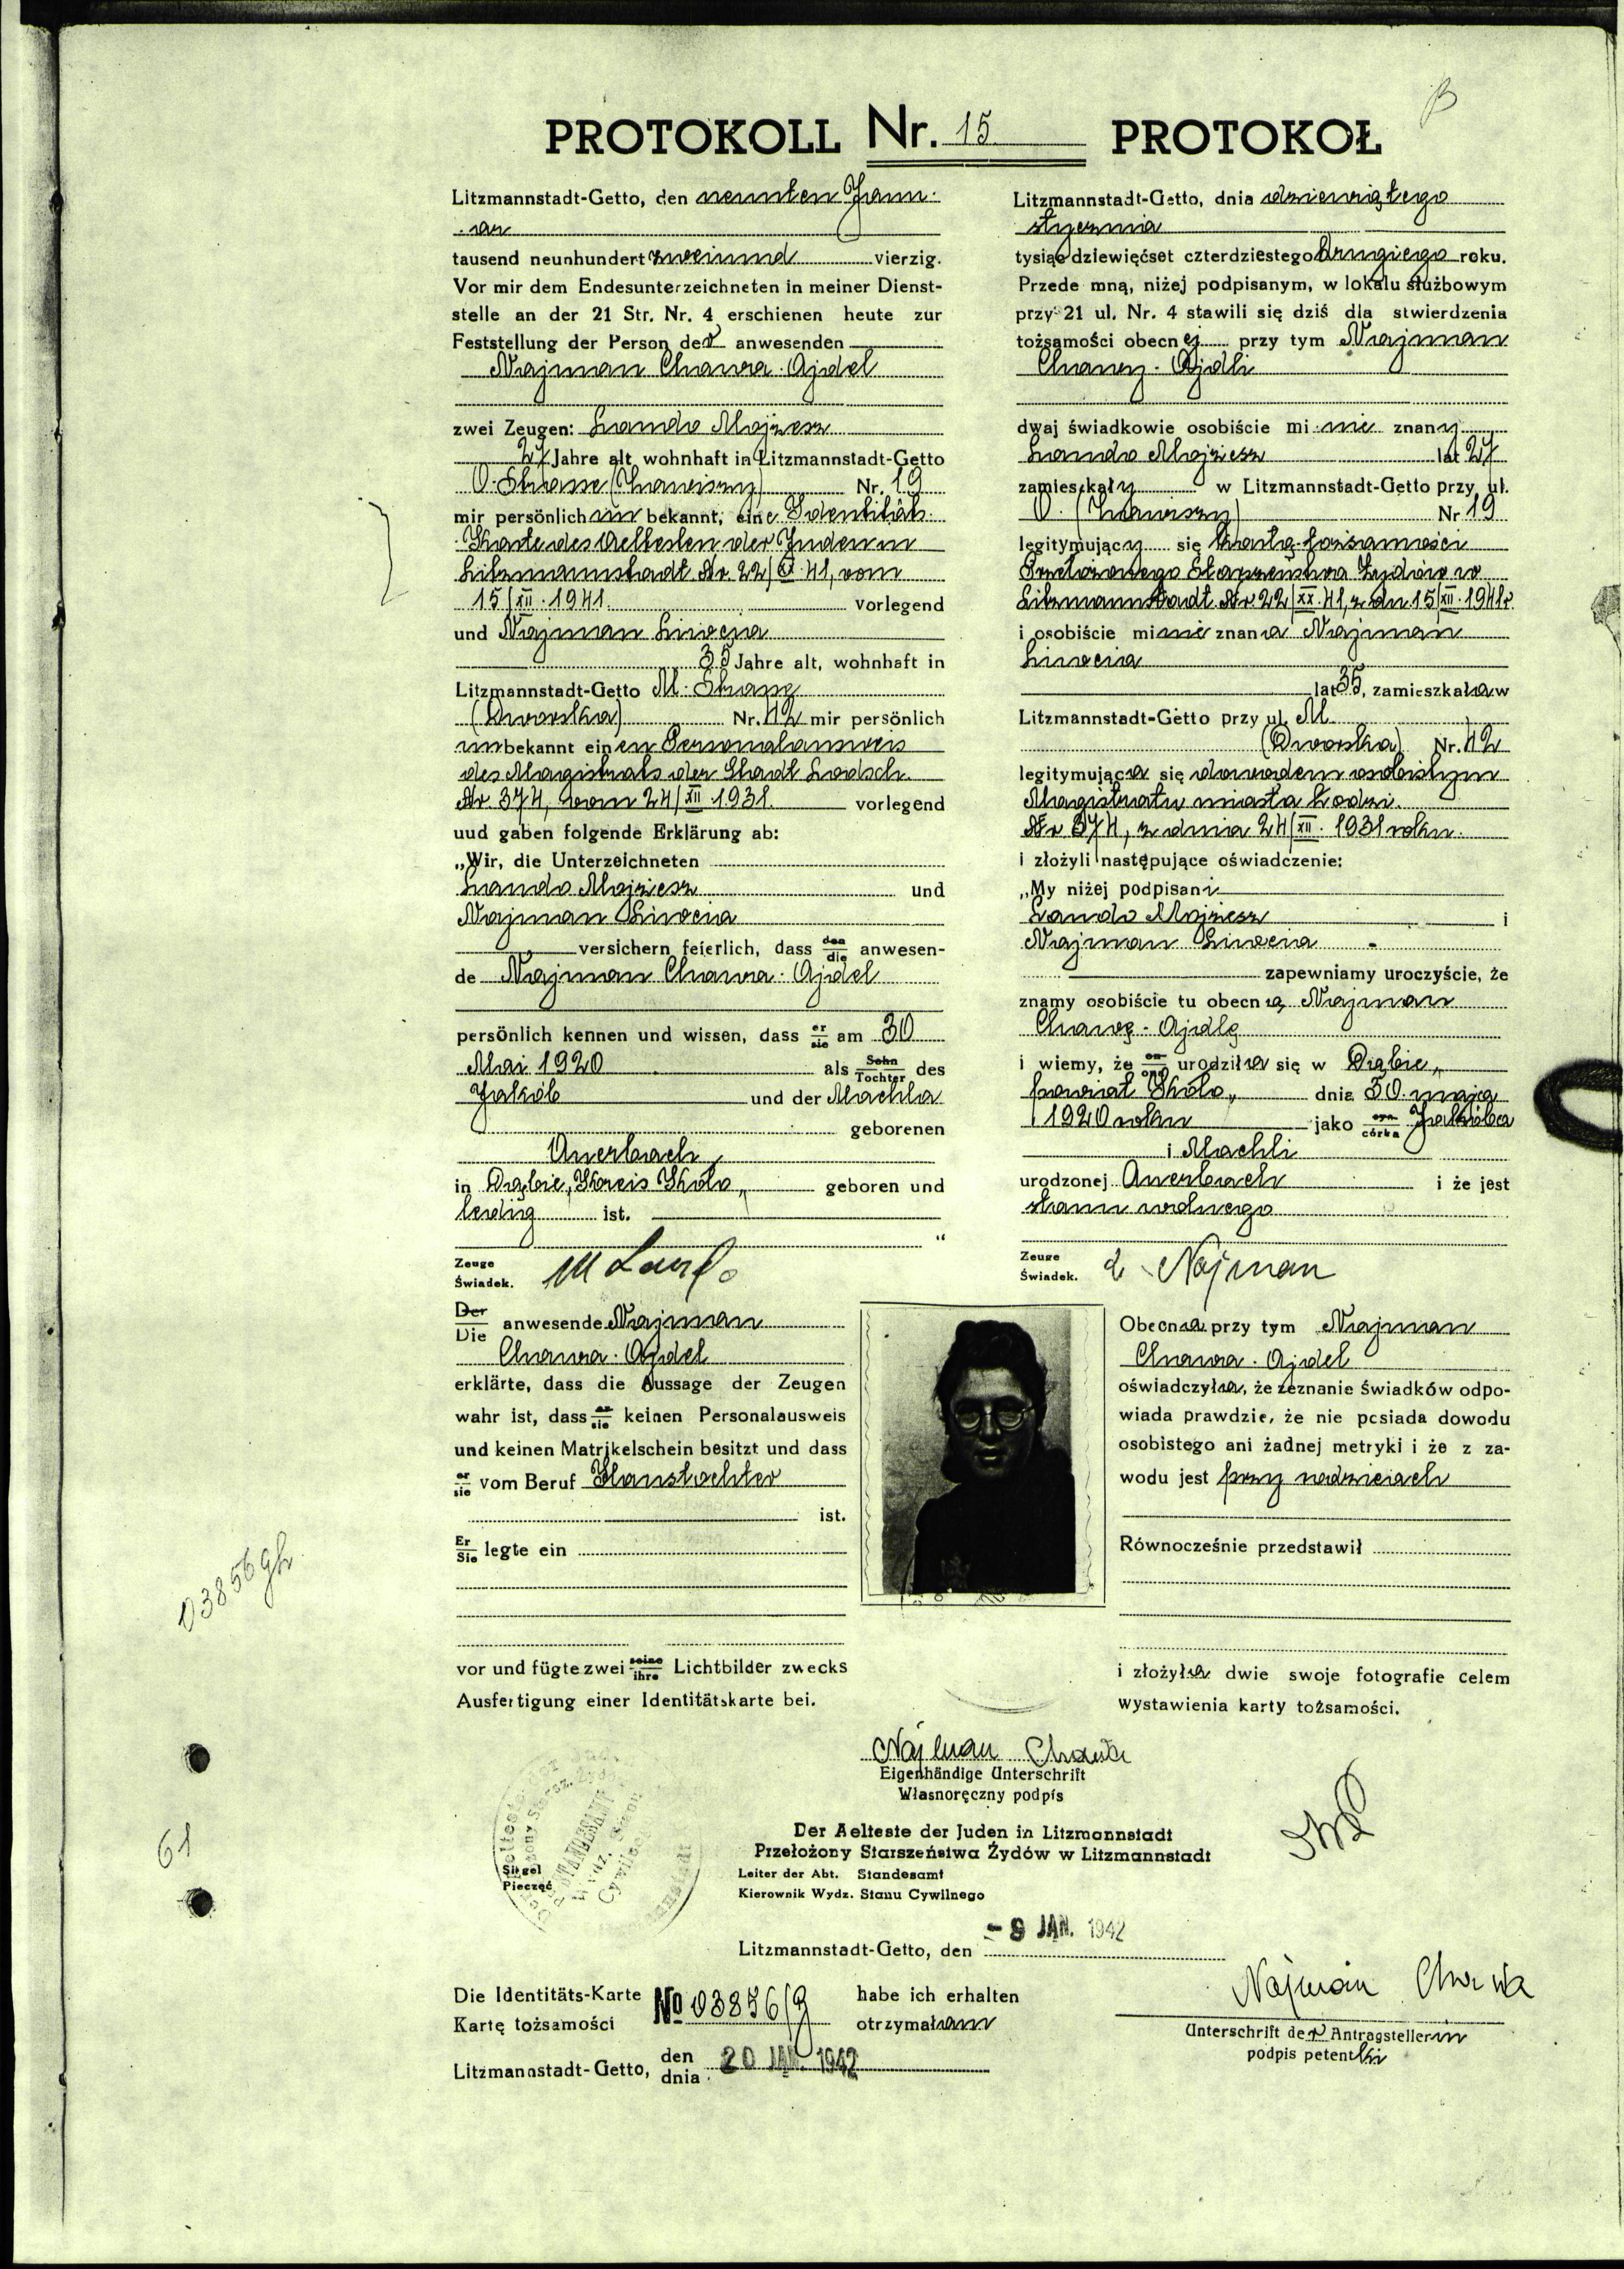 PROTOKOLL Nr. 15. PROTOKOŁ
Litzmannstadt-Getto, den neunten Janu-
-ar
tausend neunhundert zweiund vierzig.
Vor mir dem Endesunterzeichneten in meiner Dienst-
stelle an der 21 Str. Nr. 4 erschienen heute zur
Feststellung der Person der anwesenden
Najman Chawa-Ajdel
zwei Zeugen: Lando Mojżesz
27 Jahre alt, wohnhaft in Litzmannstadt-Getto
O-Strasse (Zawiszy) Nr. 19
mir persönlich un bekannt, eine Identitäts-
-Karte des Aeltesten der Juden in
Litzmannstadt Nr. 22/XX.41, vom
15/XII.1941. vorlegend
und Najman Liwcia
35 Jahre alt, wohnhaft in
Litzmannstadt-Getto M-Strasse
(Dworska) Nr. 42 mir persönlich
unbekannt einen Personalausweis
des Magistrats der Stadt Lodsch
Nr. 374, vom 24/XII.1931. vorlegend
uud gaben folgende Erklärung ab:
„Wir, die Unterzeichneten
Lando Mojżesz und
Najman Liwcia
versichern feierlich, dass der die anwesen-
de Najman Chawa-Ajdel
persönlich kennen und wissen, dass er sie am 30
Mai 1920 als Sohn Tochter des
Jakób und der Machla
geborenen
Auerbach
in Dąbie, Kreis Koło, geboren und
ledig ist.
“
Zeuge
Świadek. M Lando
Litzmannstadt-Getto, dnia dziewiątego
stycznia
tysiąc dziewięćset czterdziestego drugiego roku.
Przede mną, niżej podpisanym, w lokalu służbowym
przy 21 ul. Nr. 4 stawili się dziś dla stwierdzenia
tożsamości obecnej przy tym Najman
Chawy-Ajdli
dwaj świadkowie osobiście mi nie znany
Lando Mojżesz lat 27
zamieszkały w Litzmannstadt-Getto przy ul.
O. (Zawiszy) Nr 19
legitymujący się kartą tożsamości
Przełożonego Starszeństwa Żydów w
Litzmannstadt Nr 22/XX.41, z dn. 15/XII.1941r.
i osobiście mi nie znana Najman
Liwcia
lat 35, zamieszkała w
Litzmannstadt-Getto przy ul. M.
(Dworska) Nr. 42
legitymująca się dowodem osobistym
Magistratu miasta Łodzi
Nr 374, z dnia 24/XII. 1931 roku.
i złożyli następujące oświadczenie:
„My niżej podpisani
Lando Mojżesz i
Najman Liwcia
zapewniamy uroczyście, że
znamy osobiście tu obecną Najman
Chawę-Ajdlę
i wiemy, że on ona urodziła się w Dąbie,
powiat Koło, dnia 30. maja
1920 roku jako syn córka Jakóba
i Machli
urodzonej Auerbach i że jest
stanu wolnego
Zeuge
Świadek. L Najman
Der
Die anwesende Najman
Chawa-Ajdel
erklärte, dass die Aussage der Zeugen
wahr ist, dass er sie keinen Personalausweis
und keinen Matrikelschein besitzt und dass
er sie vom Beruf Haustochter
ist.
Er
Sie legte ein
vor und fügte zwei seine ihre Lichtbilder zwecks
Ausfertigung einer Identitätskarte bei.
Obecna przy tym Najman
Chawa-Ajdel
oświadczyła, że zeznanie świadków odpo-
wiada prawdzie, że nie posiada dowodu
osobistego ani żadnej metryki i że z za-
wodu jest przy rodzicach
Równocześnie przedstawił
i złożyła dwie swoje fotografie celem
wystawienia karty tożsamości.
03856 g/
61
Najman Chawa
Eigenhändige Unterschrift
Własnoręczny podpis
Der Aelteste der Juden in Litzmannstadt
Przełożony Starszeństwa Żydów w Litzmannstadt
Leiter der Abt. Standesamt
Kierownik Wydz. Stanu Cywilnego
Siegel
Pieczęć
STANDESAMT
Litzmannstadt-Getto, den - 9 JAN. 1942
Die Identitäts-Karte
Kartę tożsamości No 03856/g habe ich erhalten
otrzymałam
Litzmannstadt-Getto, den
dnia 20 JAN. 1942
Najman Chawa
Unterschrift der Antragstellerin
podpis petentki